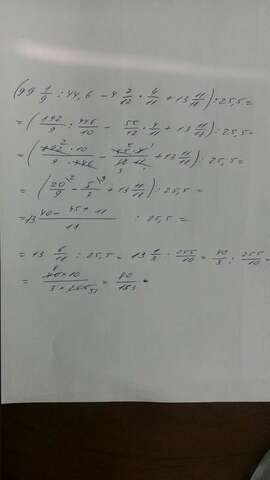 (99 1/9 : 44,6 - 4 7/12 · 4/11 + 13 11/11) : 25,5 =
= (892/9 : 446/10 - 55/12 · 4/11 + 13 11/11) : 25,5 =
= (892 · 10 / 9 · 446 - 55 · 4 / 12 · 11 + 13 11/11) : 25,5 =
= (20/9 - 5/3 + 13 11/11) : 25,5 =
= 13 40 - 45 + 11 / 18 : 25,5 =
= 13 6/18 : 25,5 = 13 1/3 : 255/10 = 40/3 : 255/10 =
= 40 × 10 / 3 × 255 51 = 80/153